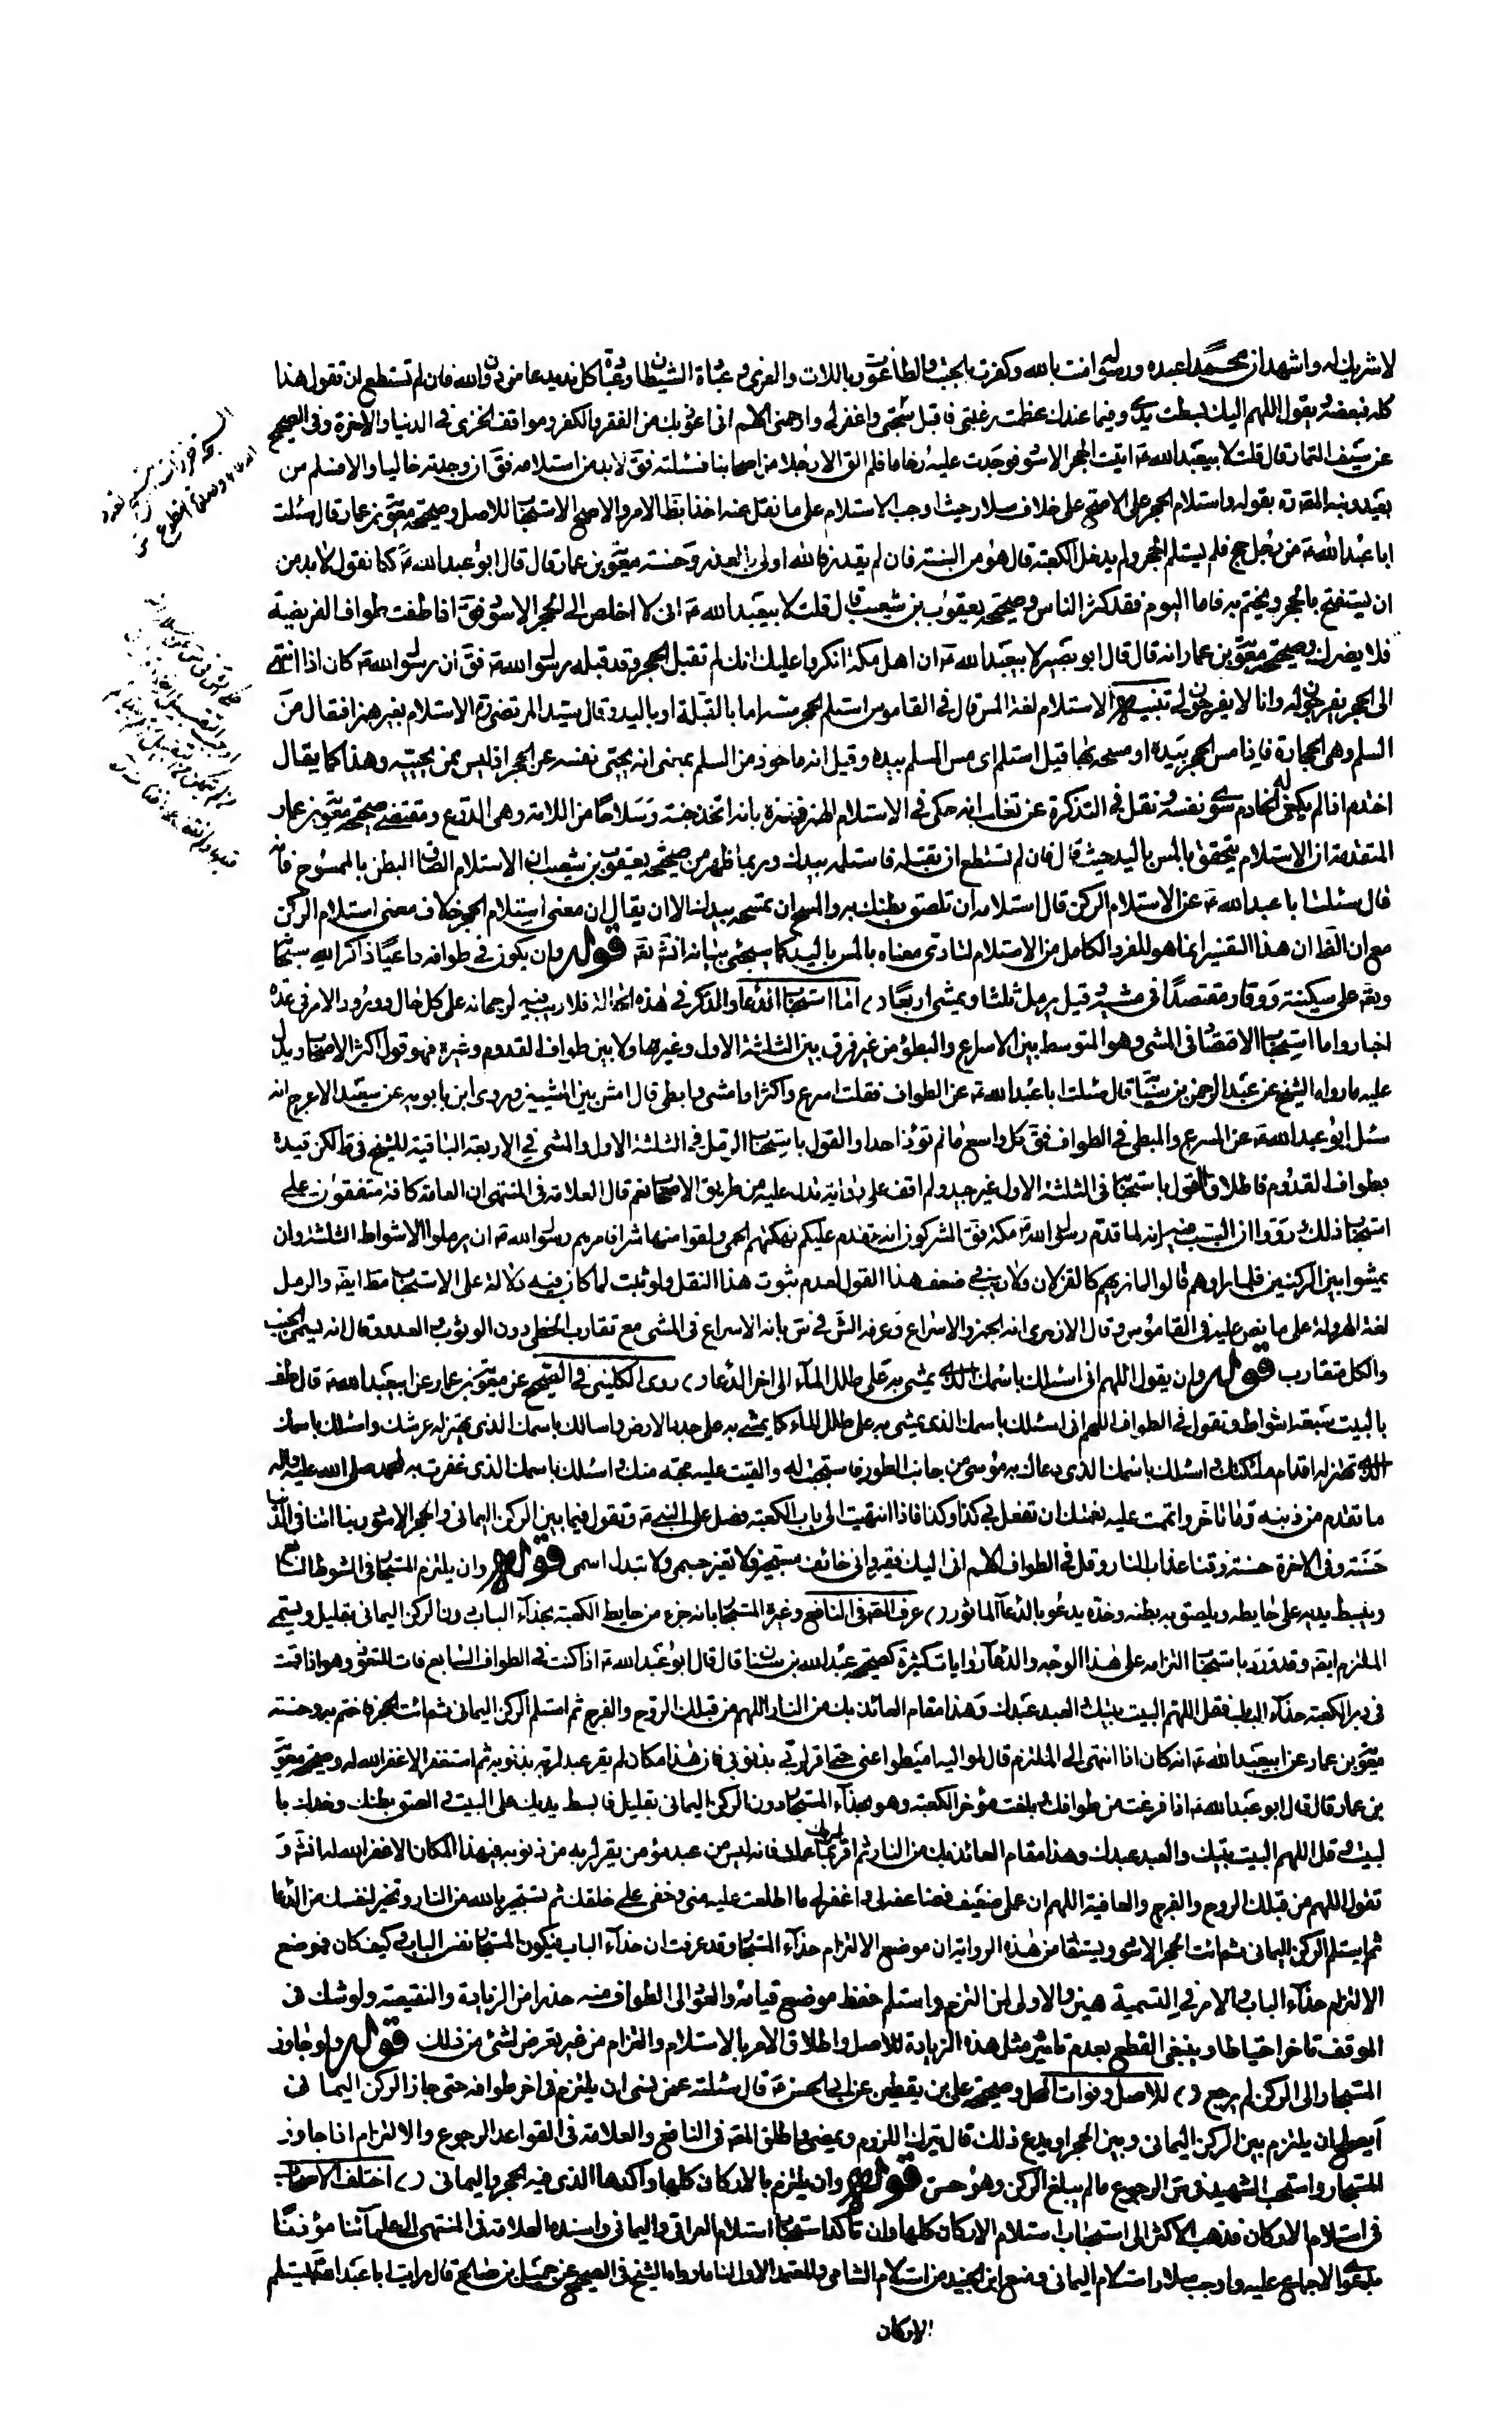 لا شريك له واشهد ان محمدا عبده ورسوله امنت بالله وكفرت بالجبت والطاغوت وباللات والعزى وعبادة الشيطان وعبادة كل ند يدعا من دون الله فان لم تستطع ان تقول هذا
كله فبعضه ويقول اللهم اليك بسطت يدى وفيما عندك عظمت رغبتى فاقبل سبحتى واغفر لى وارحمنى اللهم انى اعوذ بك من الفقر والكفر ومواقف الخزى فى الدنيا والاخرة وفى الصحيح
عن سيف التمار قال قلت لابيعبد الله ع اتيت الحجر الاسود فوجدت عليه زحاما فلم الق الا رجلا من اصحابنا فسئلته فق لا بد من استلامه فق ان وجدته خاليا والا فسلم من
بعيد ونبه المقره بقوله واستلام الحجر على الاصح على خلاف سلار حيث اوجب الاستلام على ما نقل عنه اخذا بظا الامر والاصح الاستحباب للاصل وصحيحة معوية بن عمار قال سئلت
ابا عبد الله ع من رجل حج فلم يستلم الحجر ولم يدخل الكعبة قال هو من السنة فان لم يقدر فالله اولى بالعذر وحسنة معوية بن عمار قال قال ابو عبد الله ع كنا نقول لا بد من
ان يستفتح بالحجر ويختم به فاما اليوم فقد كثر الناس وصحيحة يعقوب بن شعيب قال قلت لابيعبد الله ع انى لا اخلص الى الحجر الاسود فق اذا طفت طواف الفريضة
فلا يضرك وصحيحة معوية بن عمار انه قال قال ابو بصير لابيعبد الله ع ان اهل مكة انكروا عليك انك لم تقبل الحجر وقد قبله رسول الله ص فق ان رسول الله ص كان اذا انتهى
الى الحجر يفرجون له وانا لا يفرجون لى تنبيه الاستلام لغة المس قال فى القاموس استلم الحجر مسه اما بالقبلة او باليد وقال سيد المرتضى ره الاستلام بغير همز افتعال من
السلم وهى الحجارة فاذا مس الحجر بيده او مسحه بها قيل استلم اى مس السلم بيده وقيل انه ماخوذ من السلم بمعنى انه يحيى نفسه عن الحجر اذ ليس ممن يحييه وهذا كما يقال
اختدم اذا لم يكن له خادم سوى نفسه ونقل فى التذكرة عن ثعلب انه حكى فى الاستلام الهمز وفسره بانه اتخذه جنة وسلاحا من اللامة وهى الدرع ومقتضى صحيحة معوية بن عمار
المتقدمة ان الاستلام يتحقق بالمس باليد حيث قال فان لم تستطع ان تقبله فاستلمه بيدك وربما ظهر من صحيحة يعقوب بن شعيب ان الاستلام الصاق البطن بالممسوح فانه
قال سئلت ابا عبد الله ع عن الاستلام الركن قال استلامه ان تلصق بطنك به والمسح ان تمسحه بيدك الا ان يقال ان معنى استلام الحجر خلاف معنى استلام الركن
مع ان الظ ان هذا التفسير انما هو للفرد الكامل من الاستلام لتادى معناه بالمس باليد كما سيجئ بيانه انش تع قوله وان يكون فى طوافه داعيا ذاكر الله سبحانه
وتع على سكينة ووقار ومقتصدا فى مشيه وقيل يرمل ثلثا ويمشى اربعا اما استحباب الدعا والذكر فى هذه الحالة فلا ريب فيه لرجحانه على كل حال وورود الامر فى عدة
اخبار واما استحباب الاقتصاد فى المشى وهو المتوسط بين الاسراع والبطؤ من غير فرق بين الثلثة الاول وغيرها ولا بين طواف القدوم وغيره فهو قول اكثر الاصحاب ويدل
عليه ما رواه الشيخ عن عبد الرحمن بن سيابة قال سئلت ابا عبد الله ع عن الطواف فقلت اسرع واكثر او امشى وابطى قال امش بين المشيين وروى ابن بابويه عن سعيد الاعرج انه
سئل ابو عبد الله ع عن المسرع والمبطى فى الطواف فق كل واسع ما لم تؤذ احدا والقول باستحباب الرمل فى الثلثة الاول والمشى فى الاربعة الباقية للشيخ فى ط لكن قيده
بطواف القدوم فاطلاق القول باستحبابه فى الثلثة الاول غير جيد ولم اقف على رواية تدل عليه من طريق الاصحاب نعم قال العلامة فى المنتهى ان العامة كافة متفقون على
استحباب ذلك ورووا ان السبب فيه انه لما قدم رسول الله ص مكة فق المشركون انه يقدم عليكم قوم نهكتهم الحمى ولقوا منها شرا فامرهم رسول الله ص ان يرملوا الاشواط الثلثة وان
يمشوا بين الركنين فلما راوهم قالوا ما نريهم الا كالغزلان ولا ريب فى ضعف هذا القول لعدم ثبوت هذا النقل ولو ثبت لما كان فيه دلالة على الاستحباب مطلقا ايضا والرمل
لغة الهرولة على ما نص عليه فى القاموس وقال الازهرى انه الجمز والاسراع وعرفه الش فى س بانه الاسراع فى المشى مع تقارب الخطى دون الوثوب والعدو وقال انه يسمى الخبب
والكل متقارب قوله وان يقول اللهم انى اسئلك باسمك الذى يمشى به على طلل الماء الى اخر الدعاء روى الكلينى فى الصحيح عن معوية بن عمار عن ابيعبد الله ع قال طف
بالبيت سبعة اشواط وتقول فى الطواف اللهم انى اسئلك باسمك الذى يمشى به على طلل الماء كما يمشى به على جدد الارض واسالك باسمك الذى يهتز له عرشك واسئلك باسمك
الذى تهتز له اقدام ملئكتك واسئلك باسمك الذى دعاك به موسى من جانب الطور فاستجبت له والقيت عليه محبة منك واسئلك باسمك الذى غفرت به لمحمد صلى الله عليه واله
ما تقدم من ذنبه وما تاخر واتممت عليه نعمتك ان تفعل بى كذا وكذا فاذا انتهيت الى باب الكعبة فصل على النبى ص وتقول فيما بين الركن اليمانى والحجر الاسود ربنا اتنا فى الدنيا
حسنة وفى الاخرة حسنة وقنا عذاب النار وقل فى الطواف اللهم انى اليك فقير وانى خائف مستجير فلا تغير جسمى ولا تبدل اسمى قوله وان يلتزم المستجار فى الشوط السابع
ويبسط يديه على حايطه ويلصق به بطنه وخده ويدعو بالدعاء الماثور عرف المصره فى النافع وغيره المستجار بانه جزء من حايط الكعبة بحذاء الباب دون الركن اليمانى بقليل ويسمى
الملتزم ايضا وقد ورد باستحباب التزامه على هذا الوجه والدعاء روايات كثيرة كصحيحة عبد الله بن سنان قال قال ابو عبد الله ع اذا كنت فى الطواف السابع فات المتعوذ وهو اذا قمت
فى دبر الكعبة حذاء الباب فقل اللهم البيت بيتك والعبد عبدك وهذا مقام العائذ بك من النار اللهم من قبلك الروح والفرج ثم استلم الركن اليمانى ثم ائت الحجر فاختم به وحسنة
معوية بن عمار عن ابيعبد الله ع انه كان اذا انتهى الى الملتزم قال لمواليه اميطوا عنى حتى اقر لربى بذنوبى فان هذا مكان لم يقر عبد لربه بذنوبه ثم استغفر الا غفر الله له وصحيحة معوية
بن عمار قال قال ابو عبد الله ع اذا فرغت من طوافك وبلغت مؤخر الكعبة وهو بحذاء المستجار دون الركن اليمانى بقليل فابسط يديك على البيت والصق بطنك وخدك با
لبيت وقل اللهم البيت بيتك والعبد عبدك وهذا مقام العائذ بك من النار ثم اقر لربك بما عملت فانه ليس من عبد مؤمن يقر لربه من ذنوبه فى هذا المكان الا غفر الله له انش و
تقول اللهم من قبلك الروح والفرج والعافية اللهم ان عملى ضعيف فضاعفه لى واغفر لى ما اطلعت عليه منى وخفى على خلقك ثم تستجير بالله من النار وتخير لنفسك من الدعا
ثم استلم الركن اليمانى ثم ائت الحجر الاسود ويستفاد من هذه الرواية ان موضع الالتزام حذاء المستجار وقد عرفت ان حذاء الباب فيكون المستجار نفس الباب وكيف كان فموضع
الالتزام حذاء الباب والامر فى التسمية هين والاولى لمن التزم واستلم حفظ موضع قيامه والعود الى الطواف منه حذرا من الزيادة والنقيصة ولو شك فى
الموقف تاخر احتياطا وينبغى القطع بعدم تاثير مثل هذه الزيادة للاصل واطلاق الامر بالاستلام والتزام من غير تعرض لشئ من ذلك قوله ولو جاوز
المستجار الى الركن لم يرجع للاصل وفوات المحل وصحيحة على بن يقطين عن ابى الحسن ع قال سئلته عمن نسى ان يلتزم فى اخر طوافه حتى جاز الركن اليمانى
ايصلح ان يلتزم بين الركن اليمانى وبين الحجر او يدع ذلك قال يترك اللزوم ويمضى واطلق المصره فى النافع والعلامة فى القواعد الرجوع والالتزام اذا جاوز
المستجار واستحب الشهيد فى س الرجوع ما لم يبلغ الركن وهو حسن قوله وان يلتزم بالاركان كلها واكدها الذى فيه الحجر واليمانى اختلف الاصحاب
فى استلام الاركان فذهب الاكثر الى استحباب استلام الاركان كلها وان تاكد استحباب استلام العراقى واليمانى واسنده العلامة فى المنتهى الى علمائنا مؤذنا
بدعوى الاجماع عليه واوجب سلار استلام اليمانى ومنع ابن الجنيد من استلام الشامى والمعتمد الاول لنا ما رواه الشيخ فى الصحيح عن جميل بن صالح قال رايت ابا عبد الله ع يستلم
الاركان